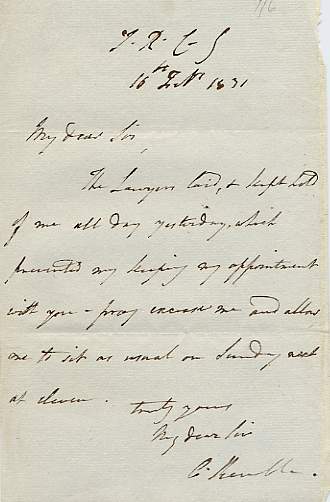 116
T. R. C. G
16th Febr 1831
My dear Sir,
The Lawyers laid, & kept hold
of me all day yesterday, which
prevented my keeping my appointment
with you - pray excuse me and allow
me to sit as usual on Sunday next
at eleven.
truly yours
My dear Sir
C. Kemble.